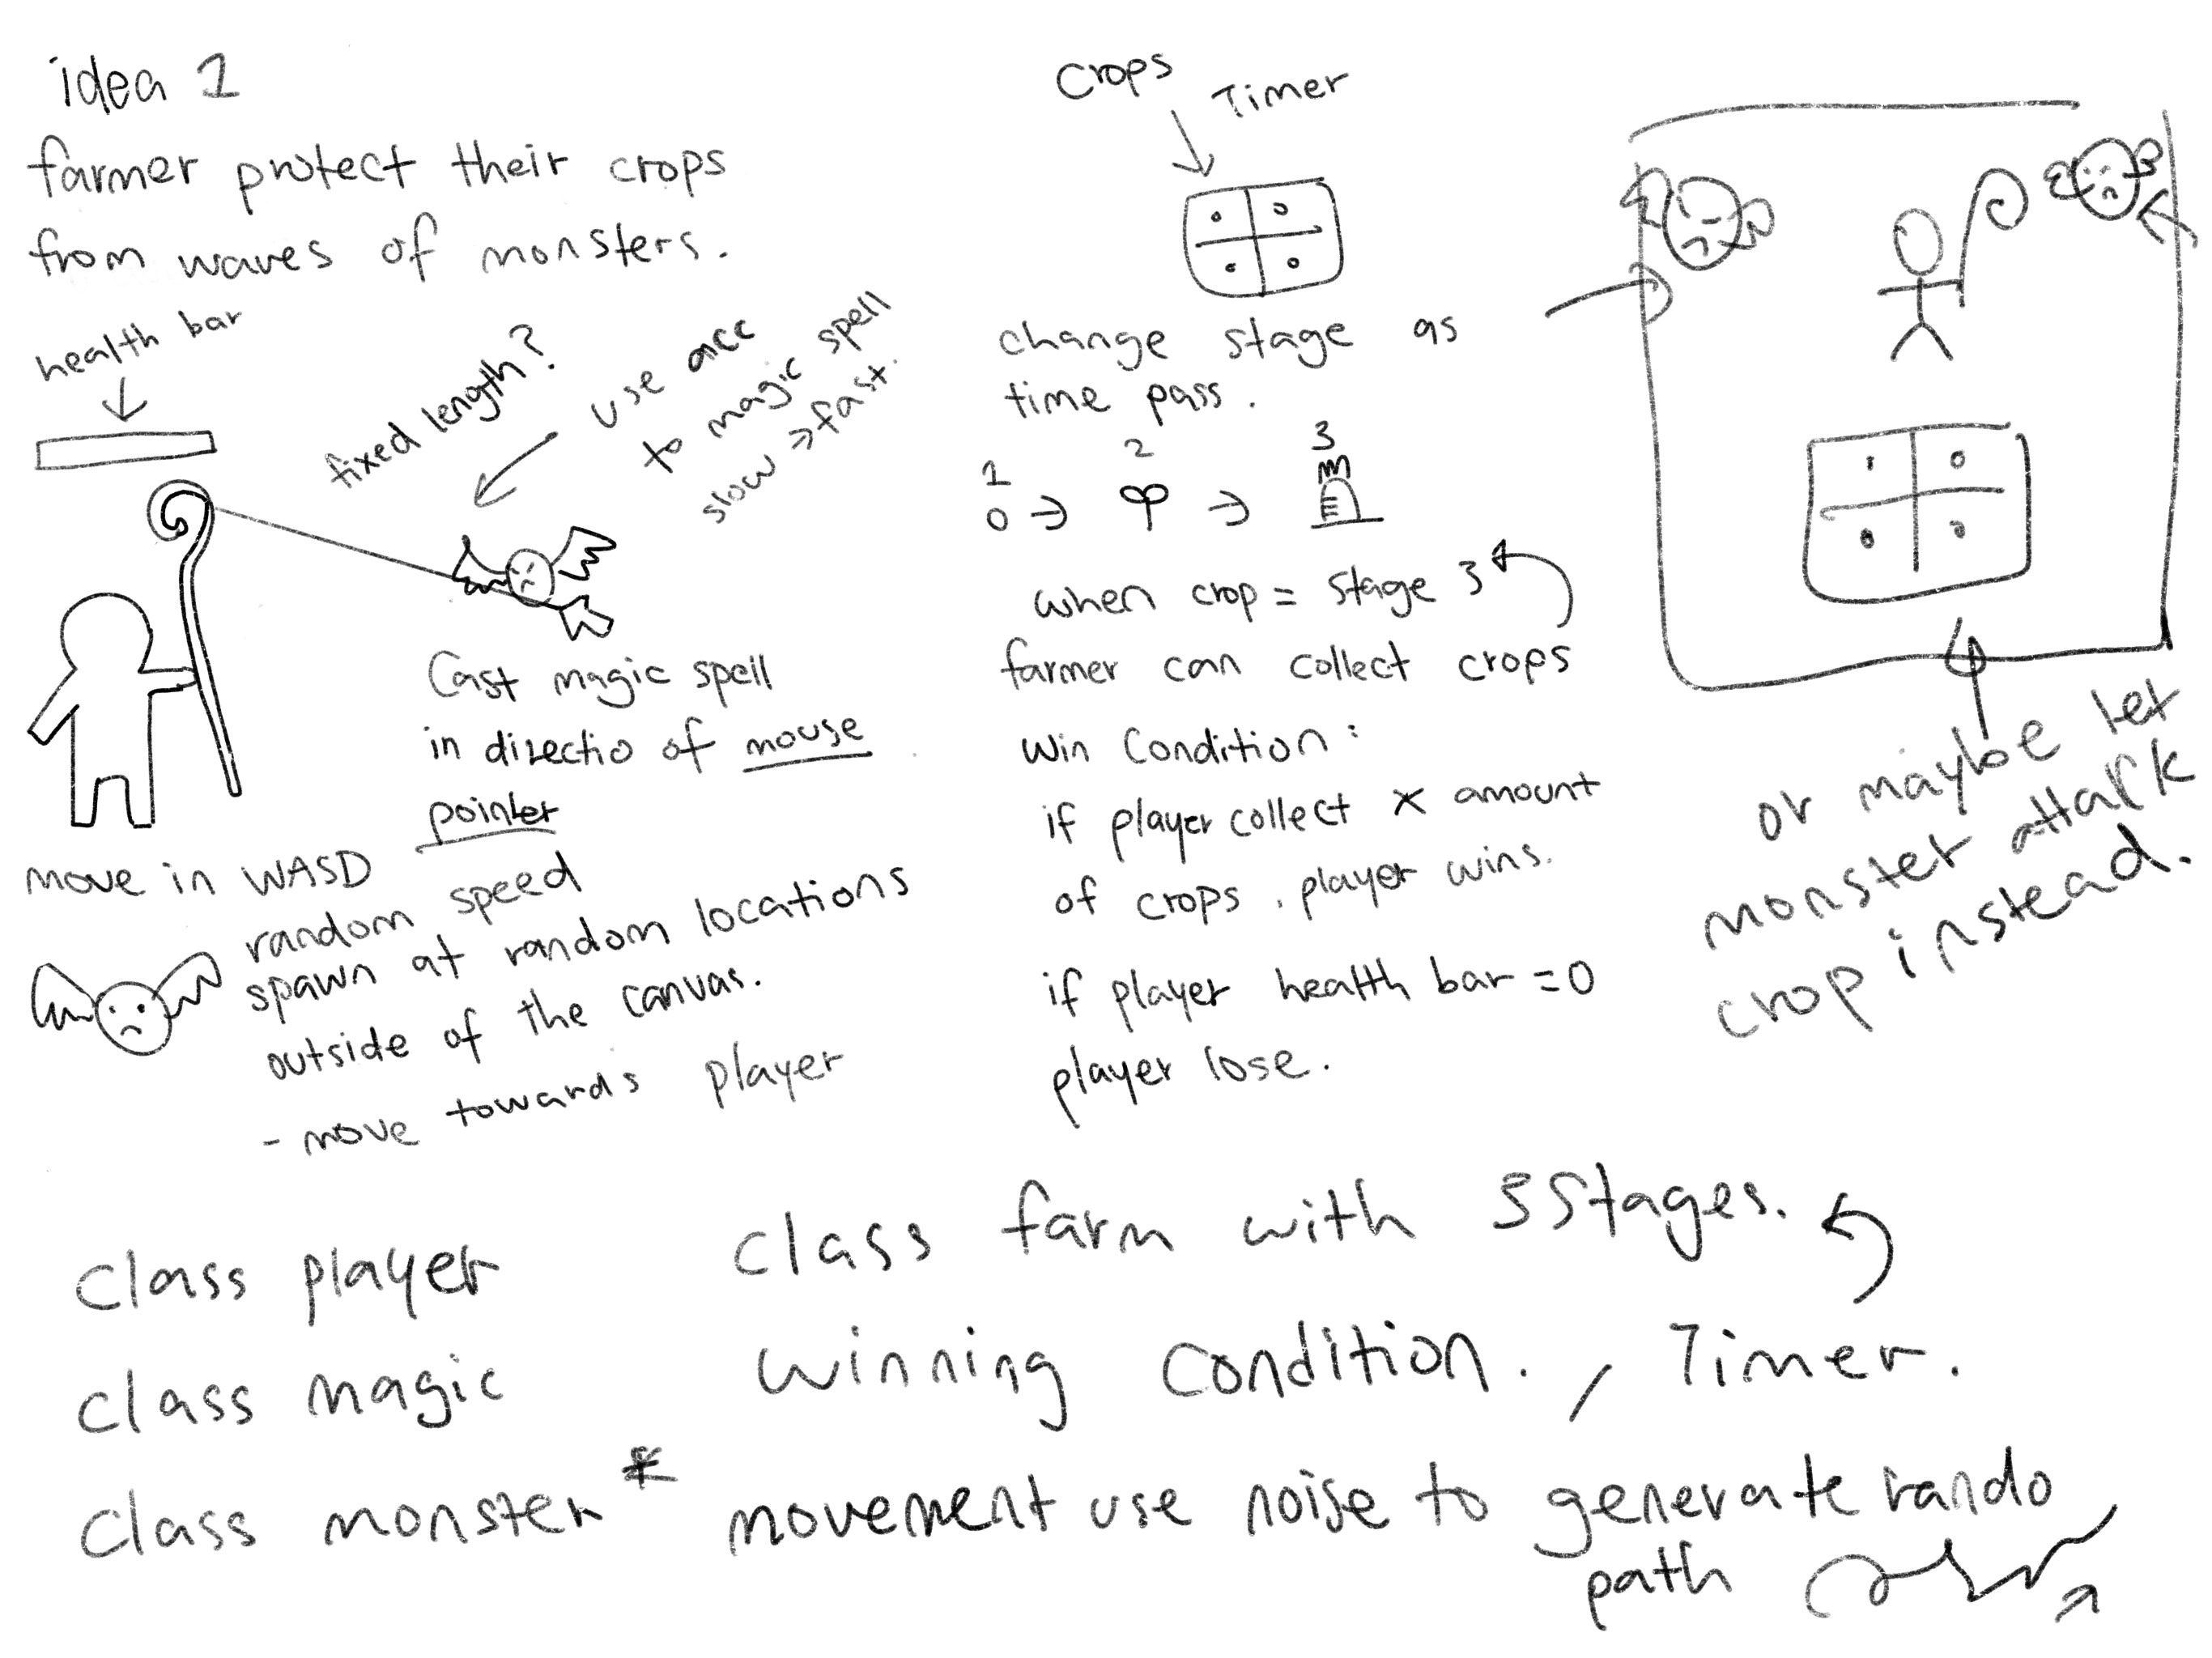 idea 1
farmer protect their crops
from waves of monsters.
health bar
fixed length?
use acc
to magic spell
slow => fast.
Cast magic spell
in directio of mouse
pointer
move in WASD
random speed
spawn at random locations
outside of the canvas.
- move towards player
Crops
Timer
change stage as
time pass.
1 2 3
when crop = stage 3
farmer can collect crops
win Condition:
if player collect x amount
of crops, player wins.
if player health bar = 0
player lose.
or maybe let
monster attack
crop instead.
class player
class magic
class monster*
class farm with 3 Stages.
winning condition. / Timer.
movement use noise to generate rando
path